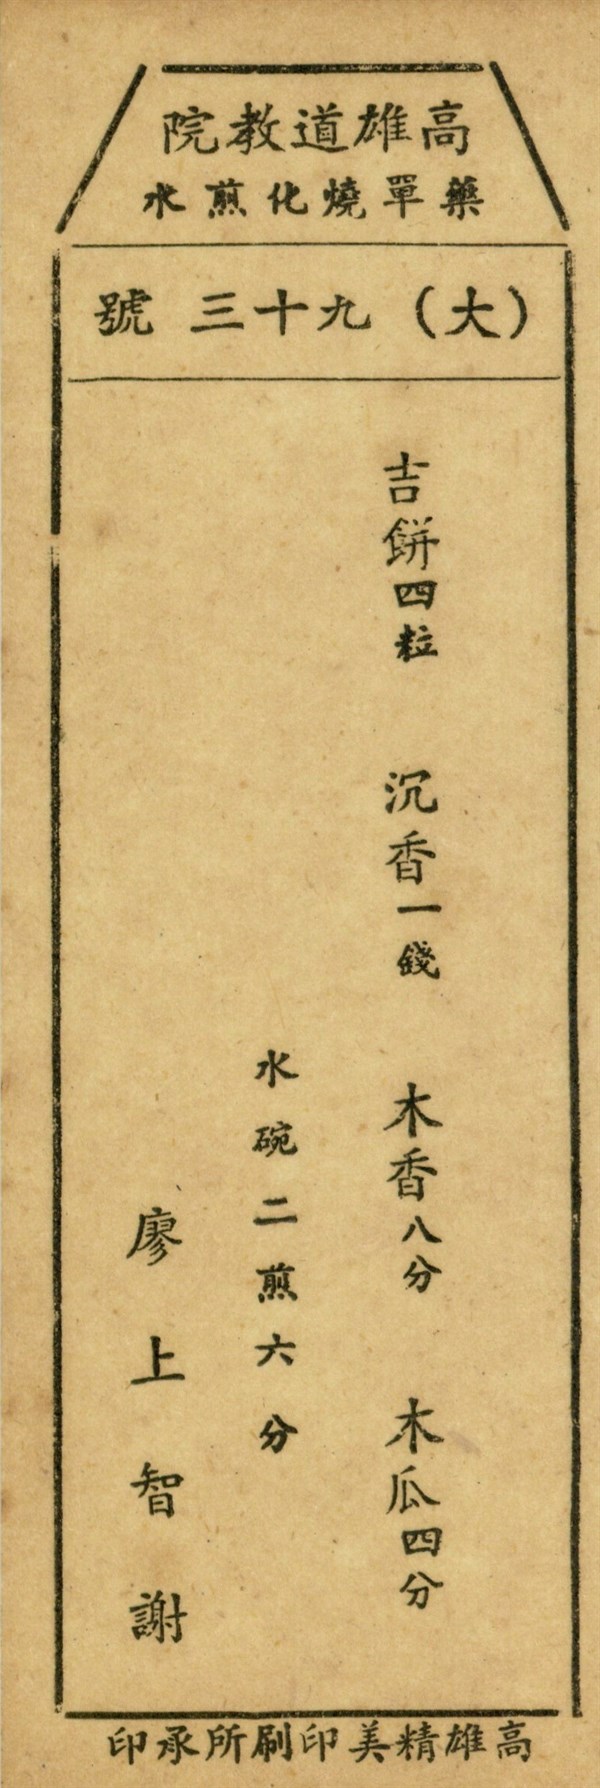 高雄道教院
藥單燒化煎水
(大)九十三號
吉餅四粒 沉香一錢 木香八分 木瓜四分
水碗二煎六分
廖上智謝
高雄精美印刷所承印